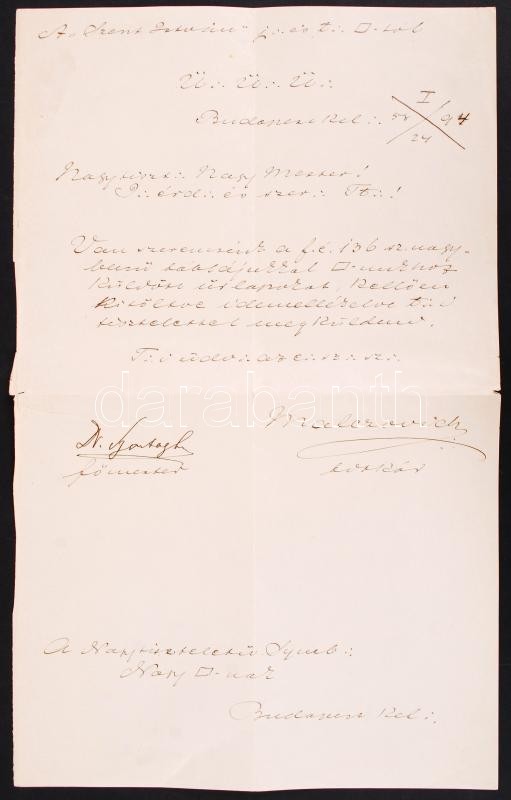 A „Szent István" j∴ és t∴ □-tól
Ü∴ Ü∴ Ü∴
Budapest Kel∴ 58/24 I/94
Nagytiszt∴ Nagy Mester!
P∴ érd∴ és szer∴ Tt∴!
Van szerencsénk a f. é. 136 sz. nagy-
becsű táblájukkal □-unkhoz
küldött űrlapokat, kellően
kitöltve idemellékelve t∴i
tisztelettel megküldeni.
T∴i üdv∴ az e∴ sz∴ sz∴
Dr.
főmester
titkár
A Nagytiszteletű Symb∴
Nagy □-nak
Budapest Kel∴
darabanth